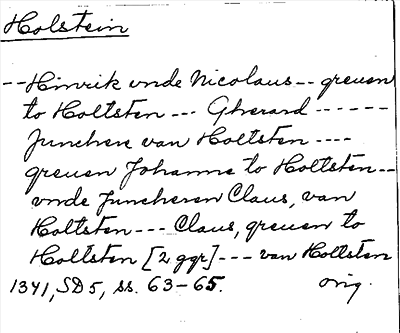 Holstein
-- Hinrik vnde Nicolaus -- greuen
to Holtsten --- Gherard ------
Junchere van Holtsten ----
greuen Johanne to Holtsten --
vnde Juncheren Claus, van
Holtsten --- Claus, greuen to
Holtsten [2 ggr] --- van Holtsten
1341, SD5, ss. 63-65. orig.